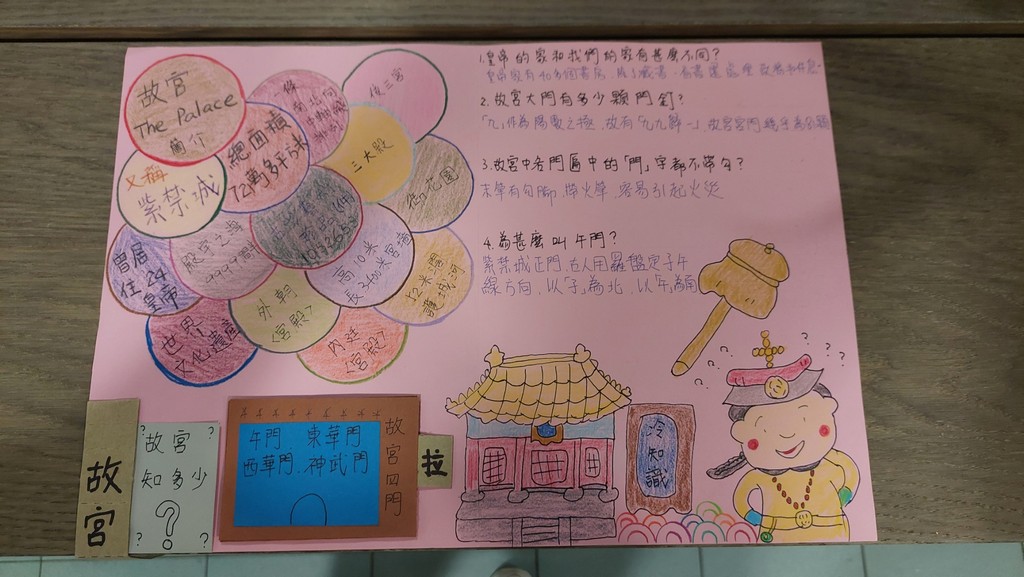 故宮
The Palace
簡介
又稱
紫禁城
總面積
72萬多平方米
三大殿
後三宮
御花園
曾居
住24
皇帝
殿宇之海
9999間
高10米
長3400米宮牆
52米闊
護城河
世界
文化遺產
外朝
<宮殿>
內廷
<宮殿>
1.皇帝的家和我們的家有甚麼不同?
2.故宮大門有多少顆門釘?
「九」作為陽數之極,故有「九九歸一」,故宮宮門
3.故宮中各門匾中的「門」字都不帶勾?
末筆有句腳,帶火筆,容易引起火災
4.為甚麼叫午門?
紫禁城正門,古人用羅盤定子午
線方向,以「子」為北,以「午」為南
故宮
?故宮?
知多少
?
? ?
午門 東華門
西華門 神武門
故宮四門
拉
冷知識
? ? ? ? ? ?